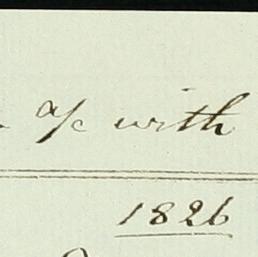 a/c with
1826